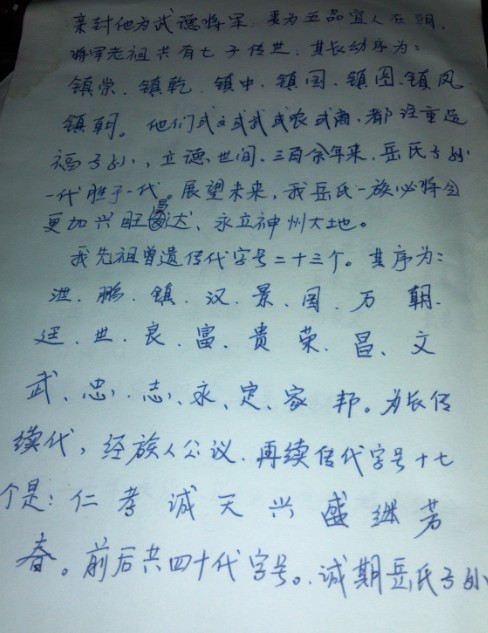 亲封他为武德将军.妻为五品宜人在朝.
将军老祖共有七子传世.其长幼序为:
镇崇.镇乾.镇中.镇国.镇图.镇凤.
镇朝。他们或文或武或农或商.都注重造
福子孙,立德世间.三百余年来.岳氏子孙
一代胜于一代。展望未来,我岳氏一族必将会
更加兴旺发达、永立神州大地。
我先祖曾遗传代字号二十三个。其序为:
洪.鹏.镇.汉.景.国.万.朝.
廷.世.良.富.贵.荣.昌.文
武、忠.志、永、定、家 邦。为长传
续代,经族人公议.再续传代字号十七
个是:仁 孝 诚 天 兴 盛 继 芳
春。前后共四十代字号。.诚期岳氏子孙